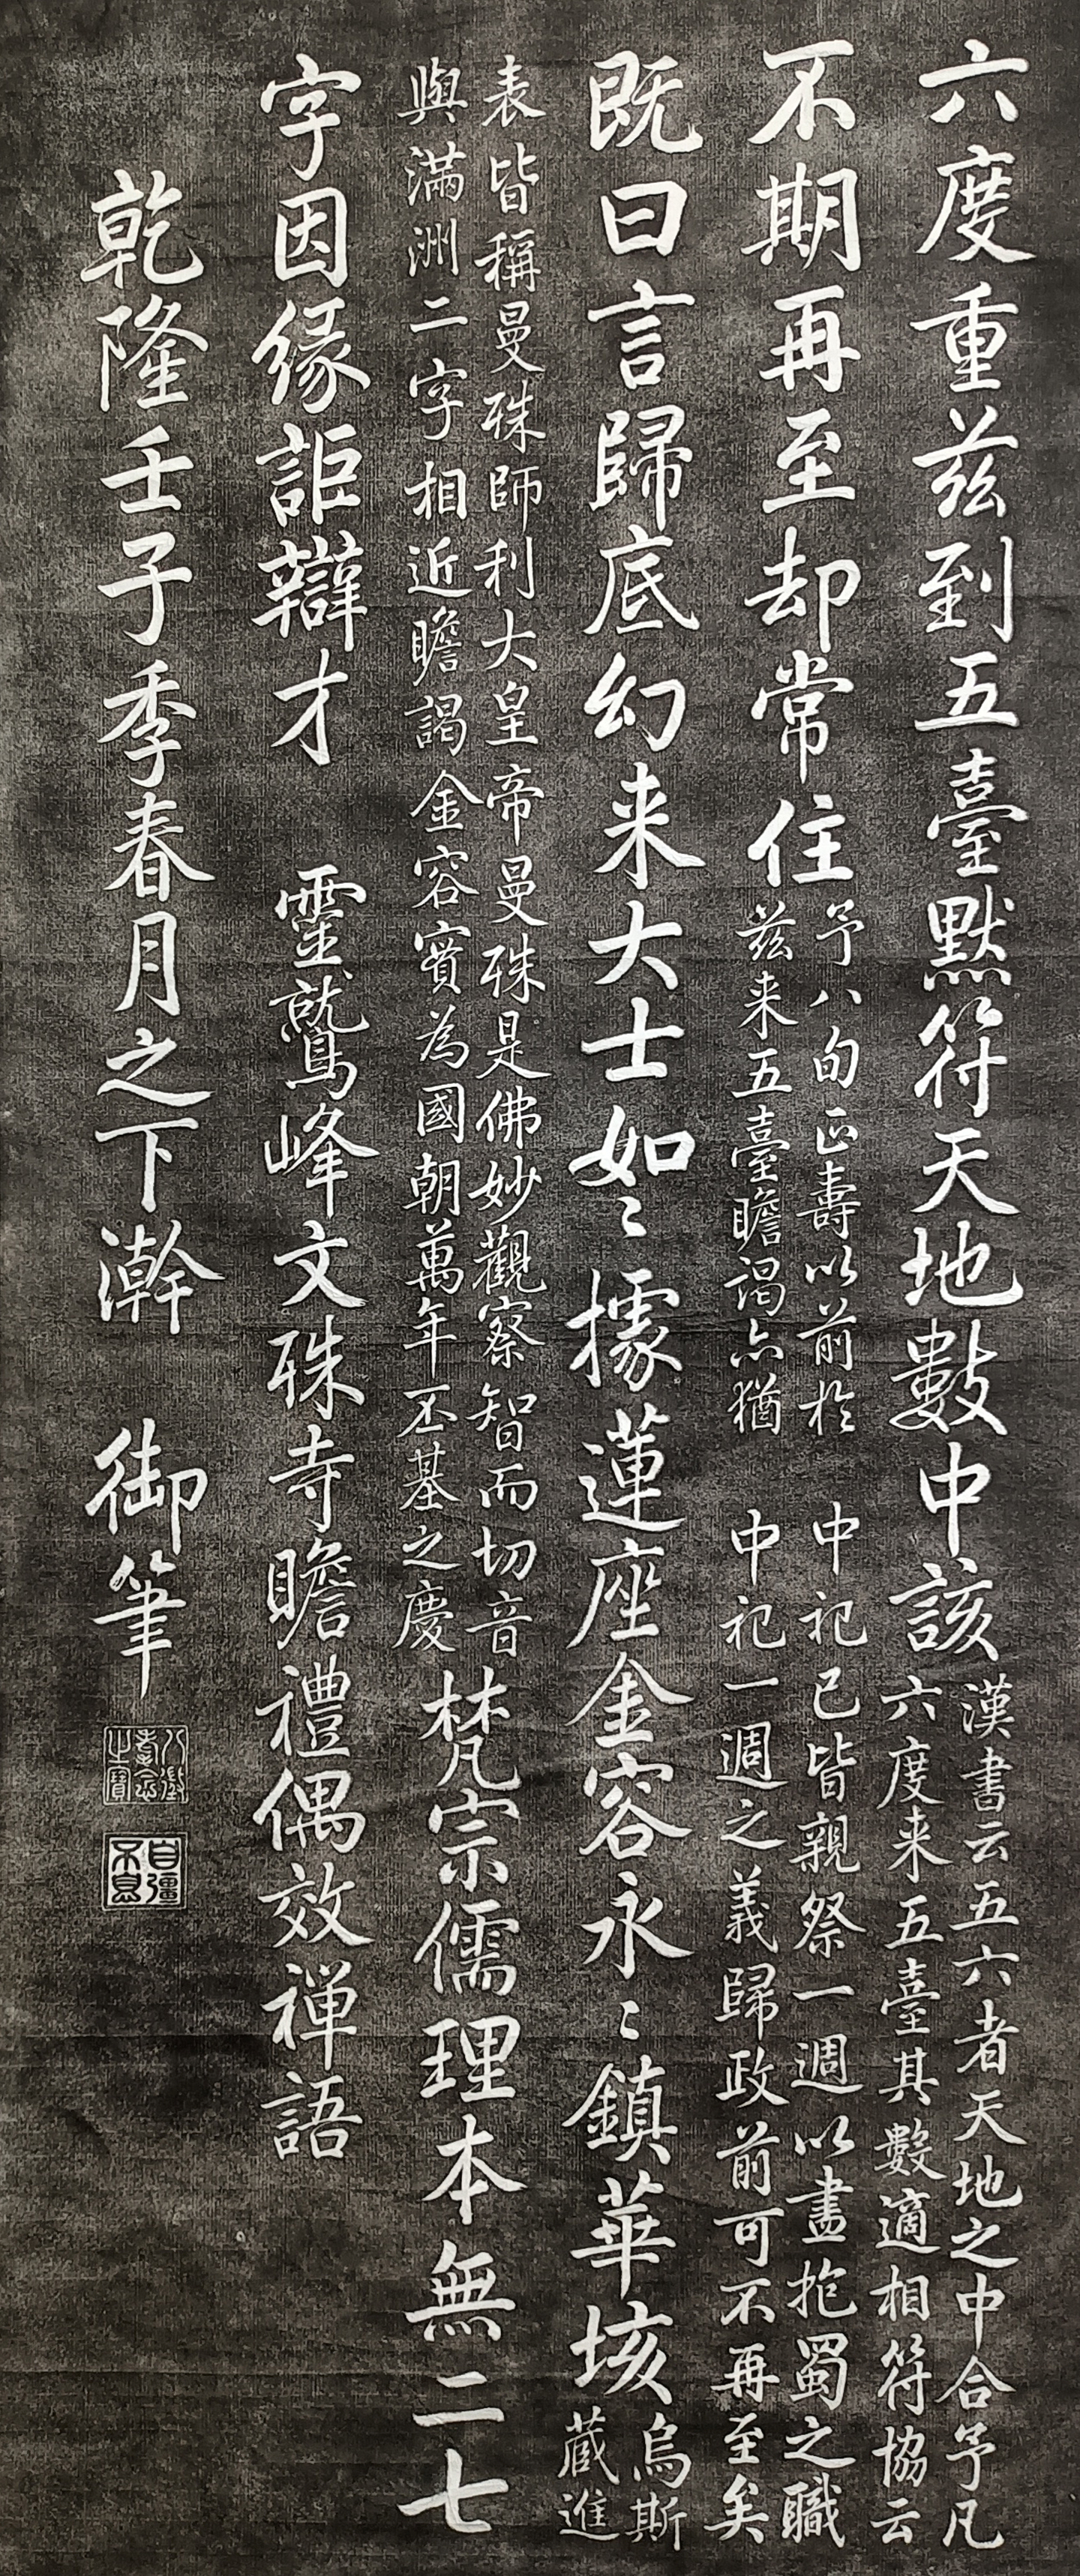 六度重茲到五臺默符天地數中該漢書云五六者天地之中合予凡
六度来五臺其數適相符協云
不期再至却常住予八旬正壽以前於 中祀已皆親祭一週以盡抱蜀之職
茲来五臺瞻謁亦猶 中祀一週之義歸政前可不再至矣
既曰言歸底幻来大士如〻據蓮座金容永〻鎮華垓烏斯
藏進
表皆稱曼殊師利大皇帝曼殊是佛妙觀察智而切音
與滿洲二字相近瞻謁金容實為國朝萬年丕基之慶梵宗儒理本無二七
字因緣詎辯才 靈鷲峰文殊寺瞻禮偶效禅語
乾隆壬子季春月之下澣 御筆
八徵耄念之寶
自彊不息